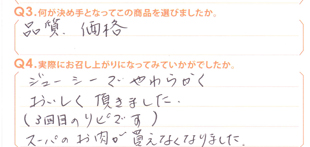 Q3.何が決め手となってこの商品を選びましたか。
品質．価格
Q4.実際にお召し上がりになってみていかがでしたか。
ジューシーで やわらかく
おいしく 頂きました．
(3回目のリピです)
スーパのお肉が買えなくなりました．